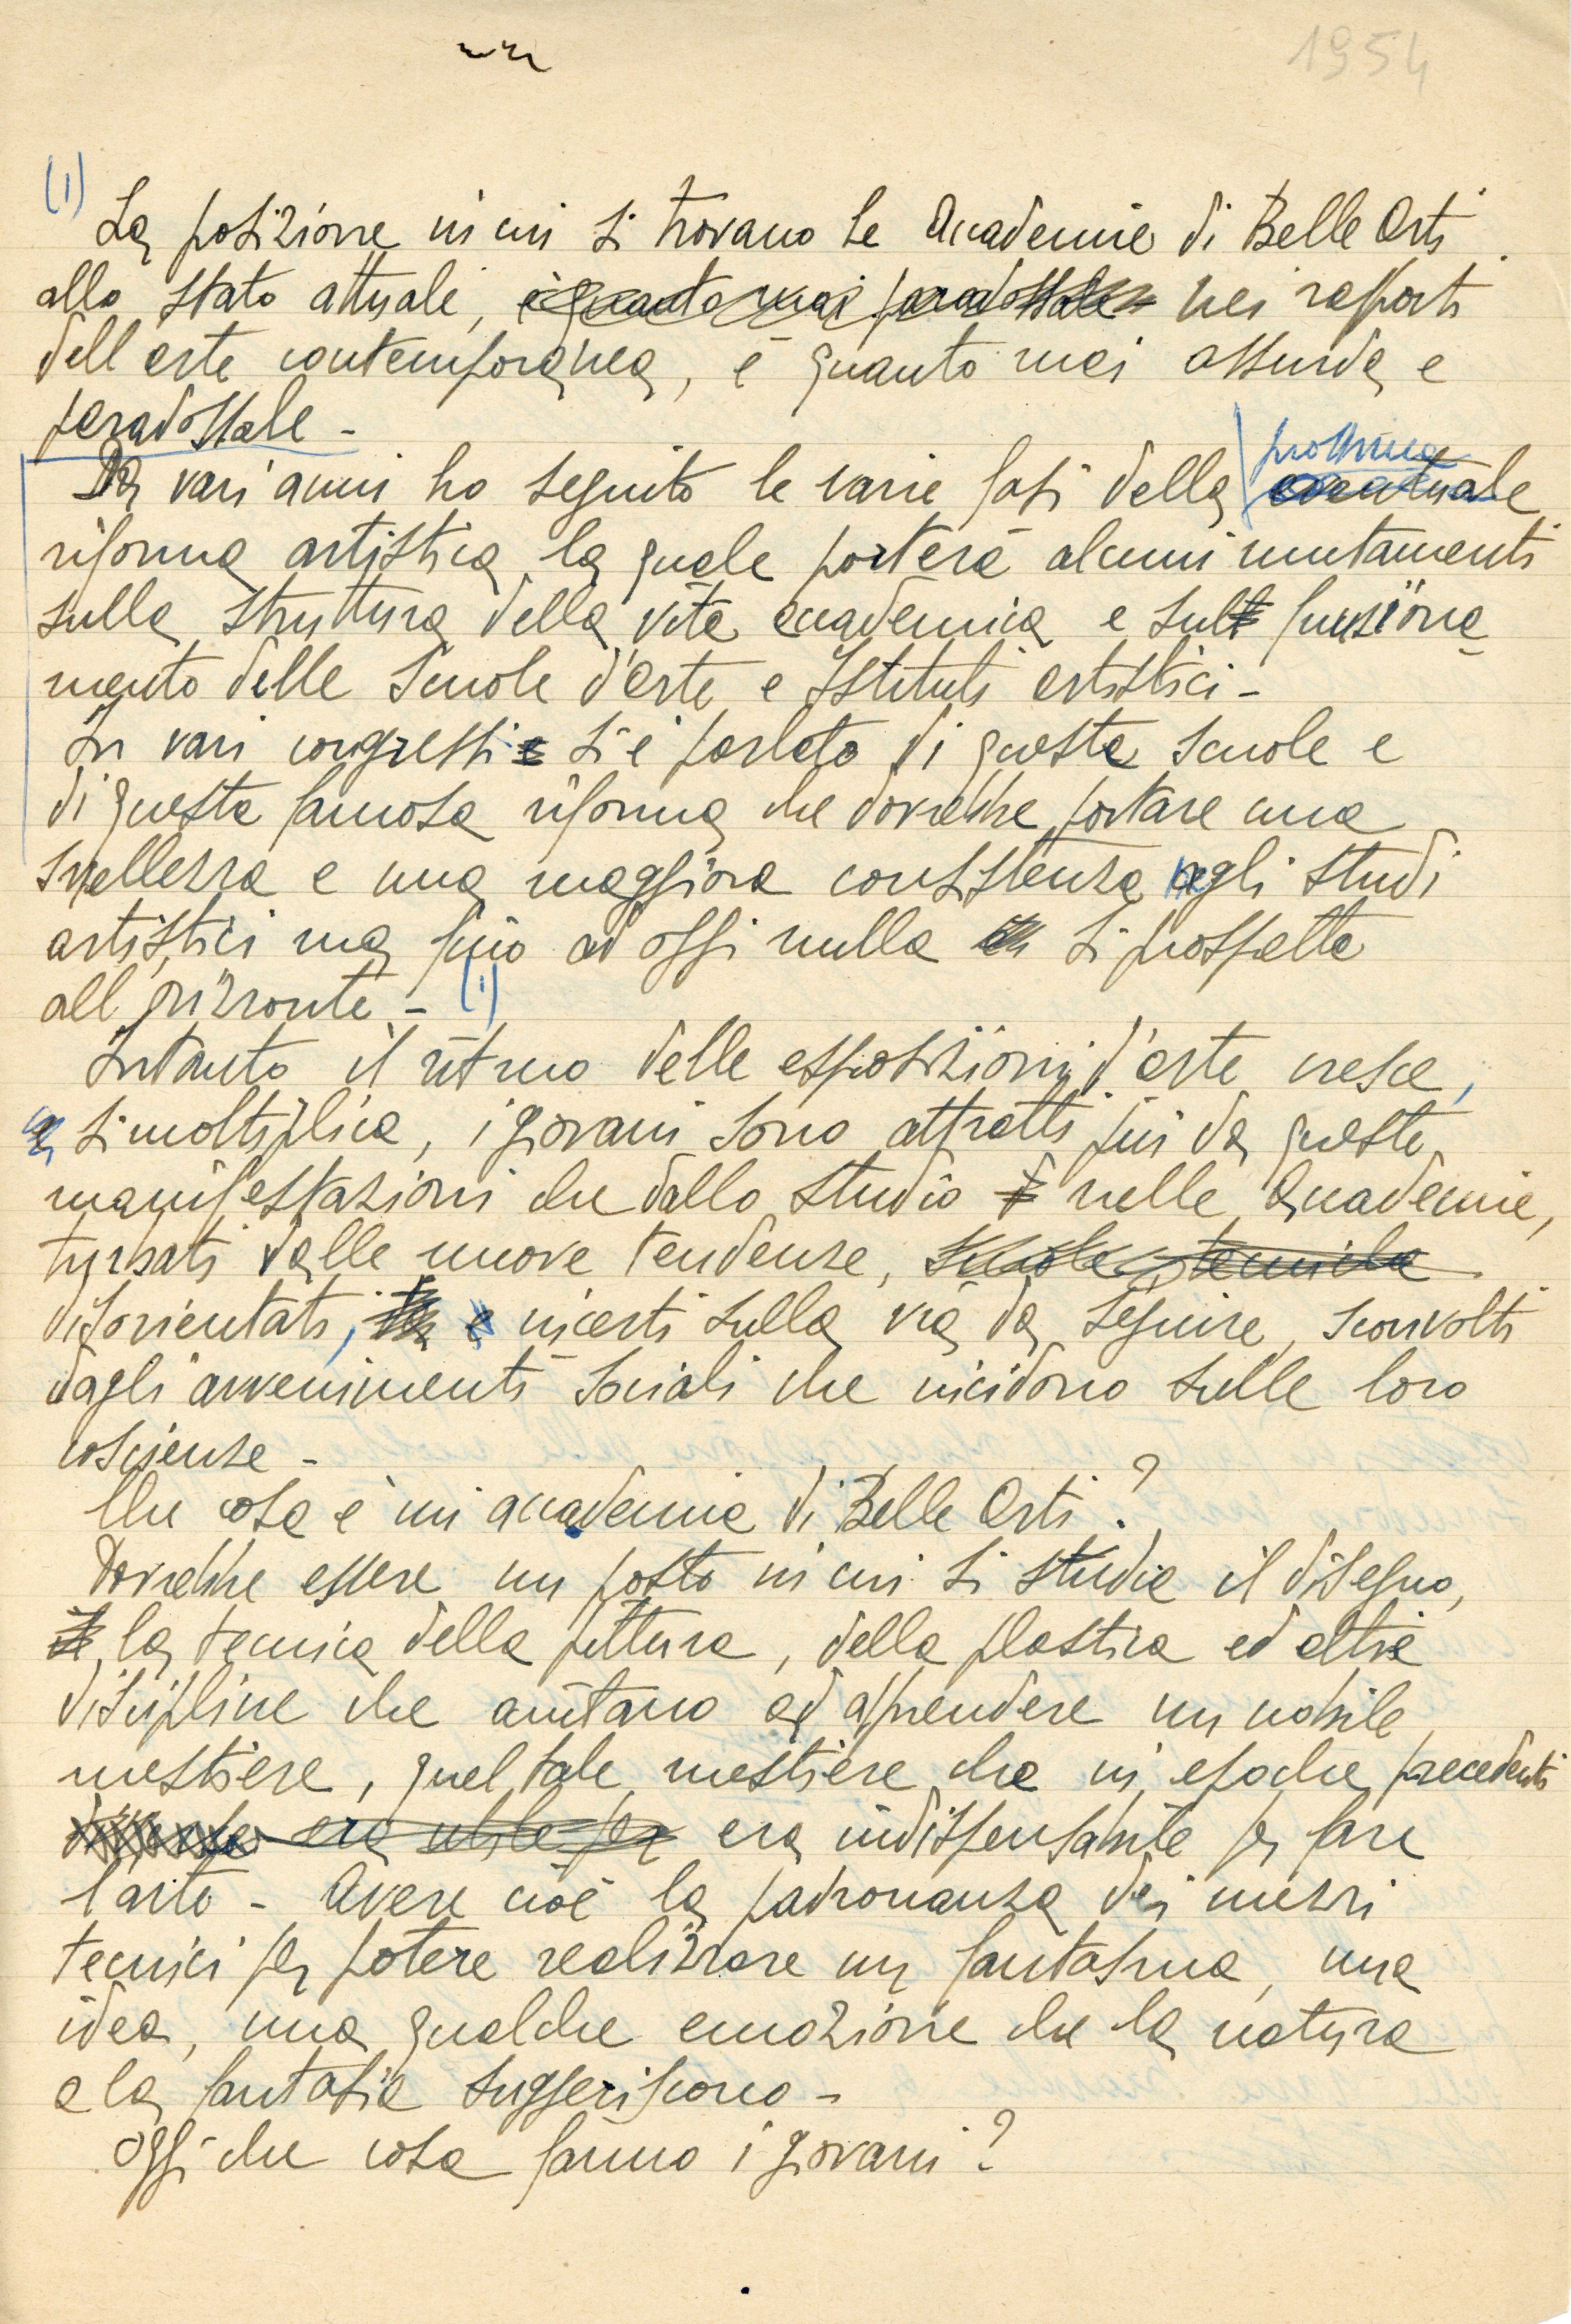 1954
(1)
La posizione in cui si trovano le Accademie di Belle Arti
allo stato attuale, è quanto mai paradossale nei rapporti
dell'arte contemporanea, è quanto mai assurda e
paradossale -
prossima
Da vari anni ho seguito le varie fasi della eventuale
riforma artistica la quale porterà alcuni mutamenti
sulla struttura della vita accademica e sul funziona
mento delle Scuole d'arte e Istituti artistici -
In vari congressi si è parlato di queste scuole e
di questa famosa riforma che dovrebbe portare una
snellezza e una maggiore consistenza negli studi
artistici ma fino ad oggi nulla si prospetta
all'orizzonte - (1)
Intanto il ritmo delle esposizioni d'arte cresce,
si moltiplica, i giovani sono attratti più da queste
manifestazioni che dallo studio nelle Accademie,
turbati dalle nuove tendenze, scuole, tecniche
disorientati, incerti sulla via da seguire, sconvolti
dagli avvenimenti sociali che incidono sulle loro
coscienze -
Che cosa è un accademia di Belle Arti?
Dovrebbe essere un posto in cui si studia il disegno,
la tecnica della pittura, della plastica ed altre
discipline che aiutano ad apprendere un nobile
mestiere, quel tale mestiere che in epoche precedenti
era utile per era indispensabile per fare
l'arte - Avere cioè la padronanza dei mezzi
tecnici per potere realizzare un fantasma, una
idea, una qualche emozione che la natura
e la fantasia suggeriscono -
Oggi che cosa fanno i giovani?